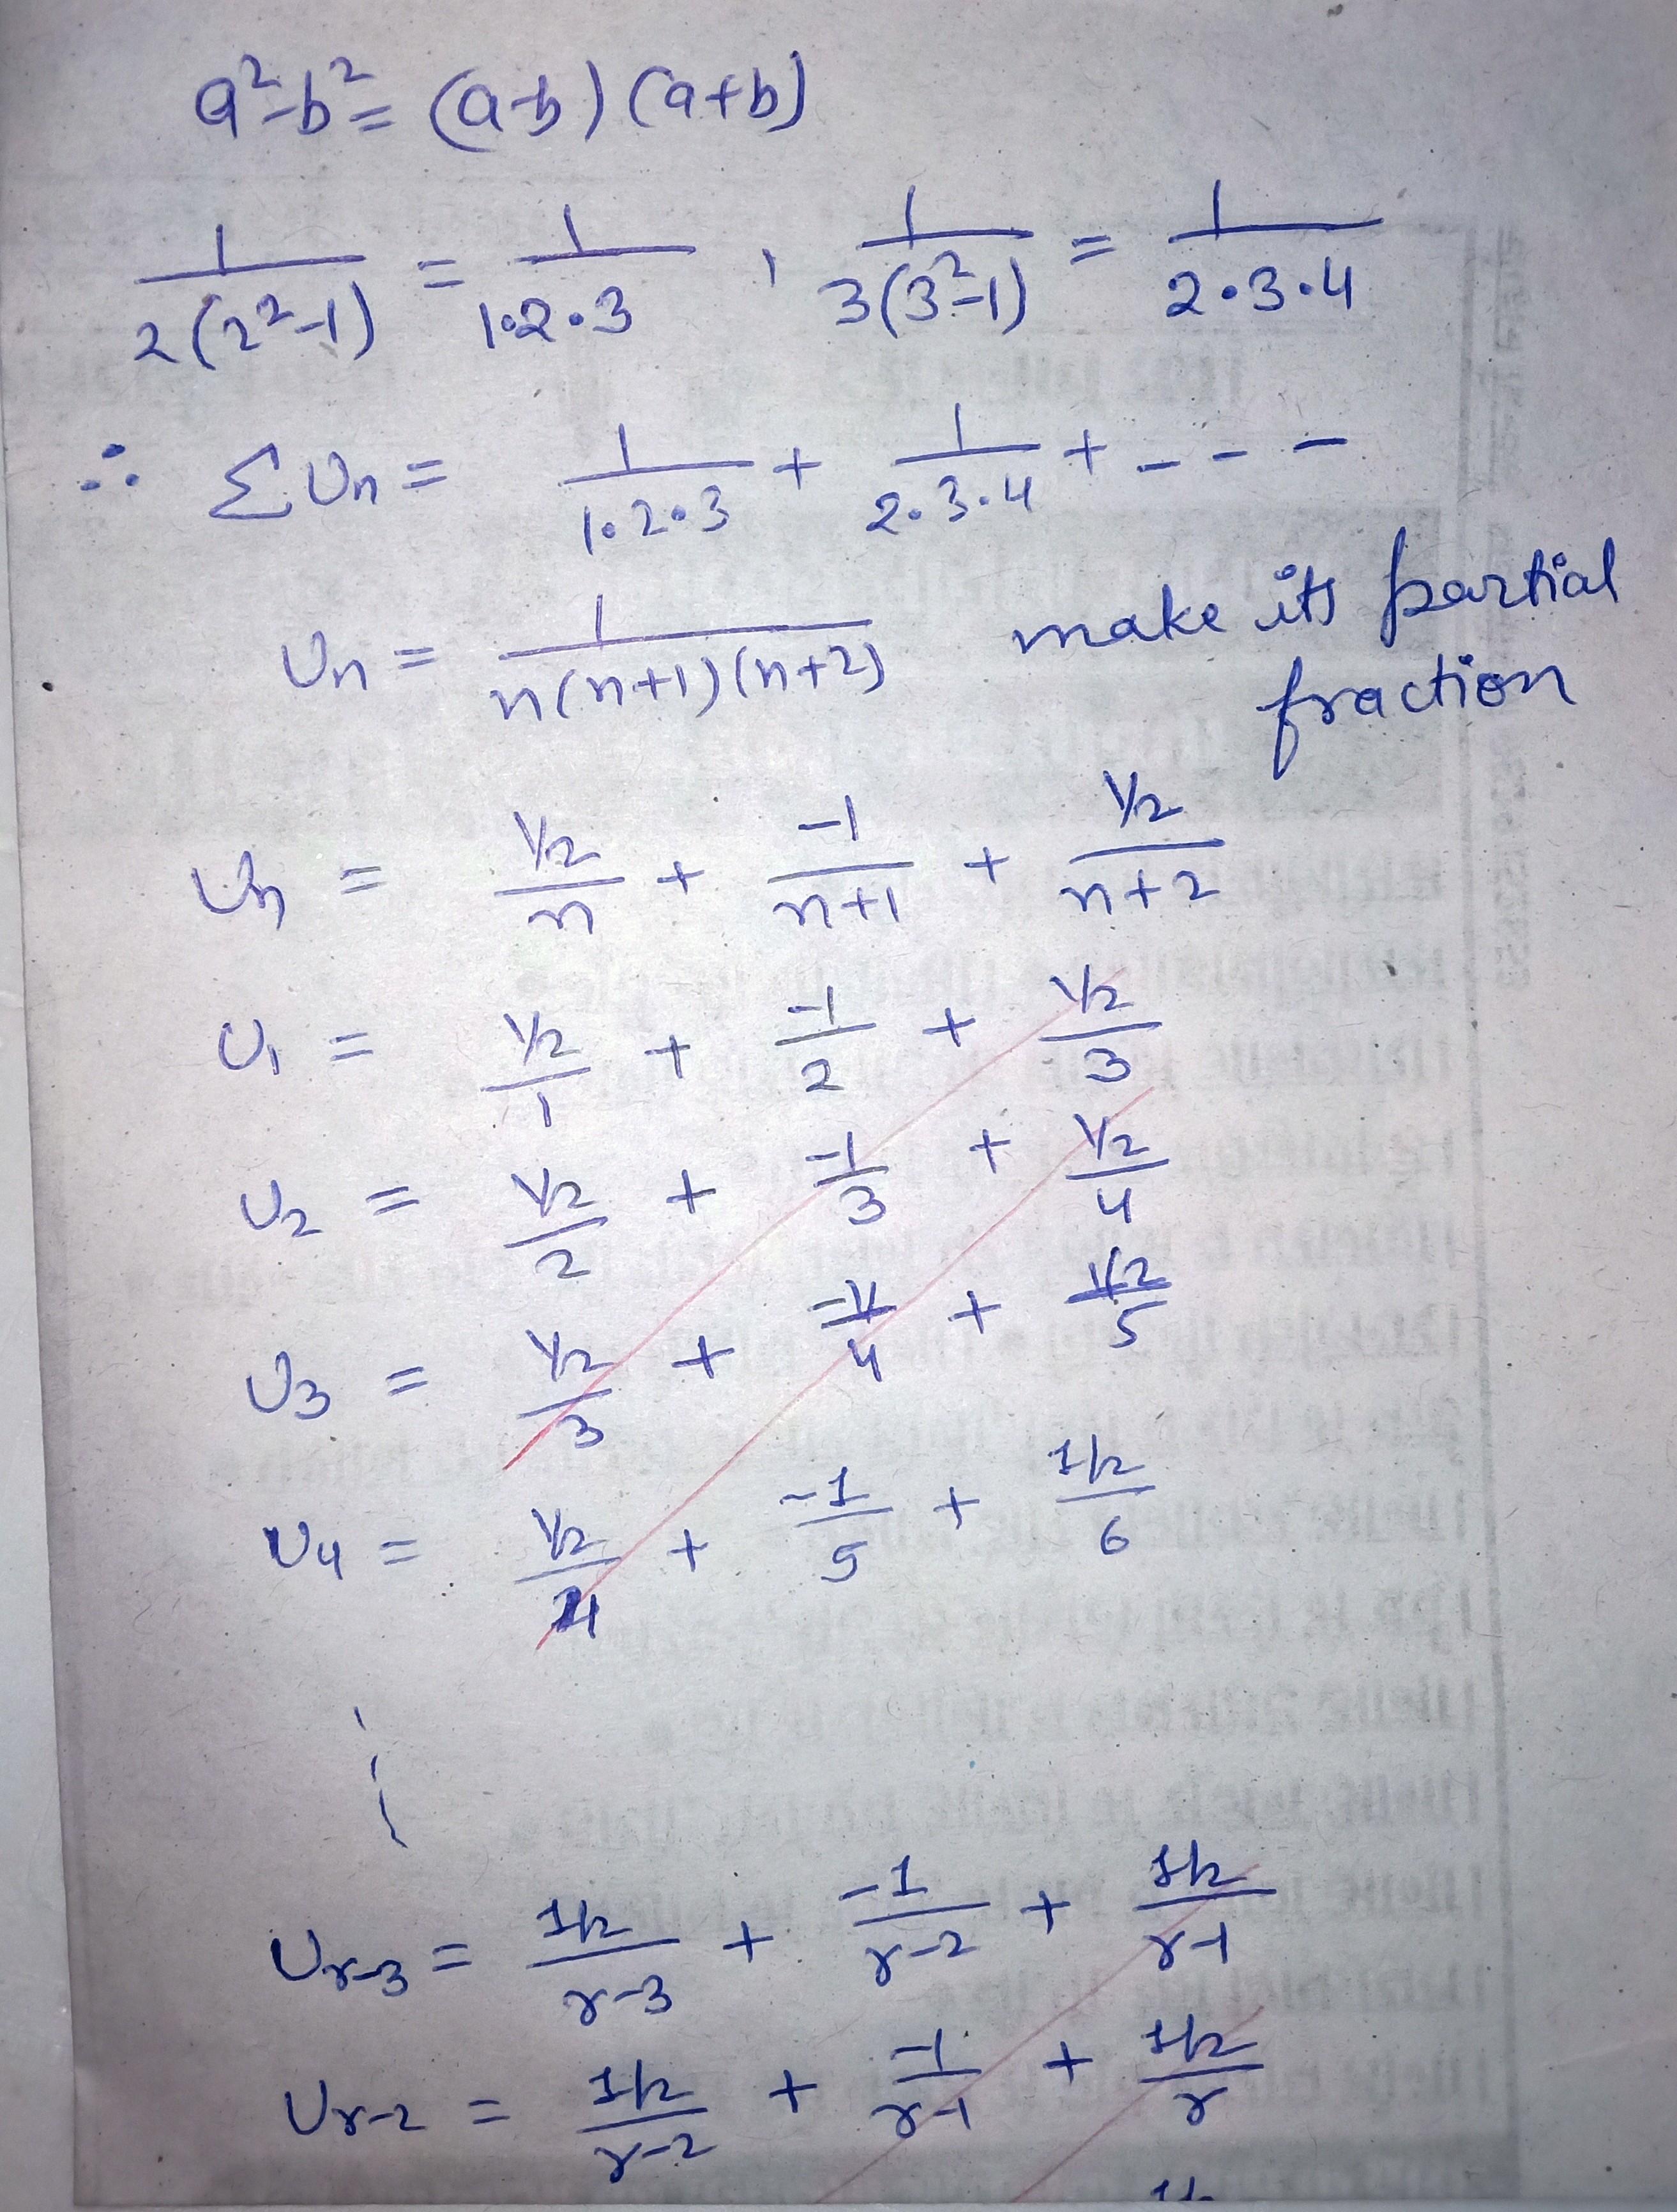 a²-b² = (a-b) (a+b)
1/2(2²-1) = 1/1·2·3 , 1/3(3²-1) = 1/2·3·4
∴ ΣUn = 1/1·2·3 + 1/2·3·4 + - - -
Un = 1/n(n+1)(n+2) make its partial
fraction
Un = ½/n + -1/n+1 + ½/n+2
U₁ = ½/1 + -1/2 + ½/3
U₂ = ½/2 + -1/3 + ½/4
U₃ = ½/3 + -1/4 + ½/5
U₄ = ½/4 + -1/5 + 1/2/6
Ur-3 = 1/2/r-3 + -1/r-2 + 1/2/r-1
Ur-2 = 1/2/r-2 + -1/r-1 + 1/2/r